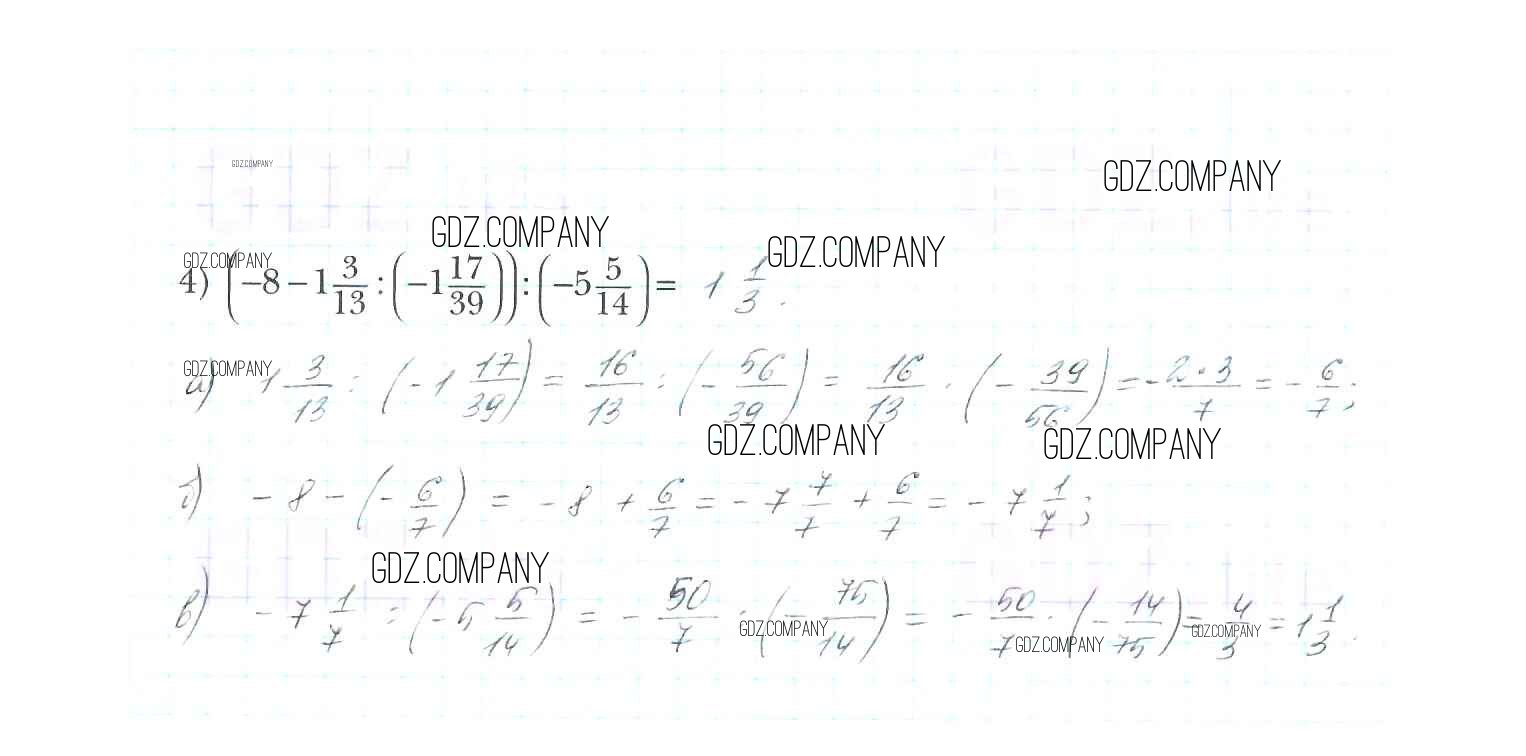 GDZ.COMPANY
GDZ.COMPANY
GDZ.COMPANY
GDZ.COMPANY
GDZ.COMPANY
4) (−8 − 1 3/13 : (−1 17/39)) : (−5 5/14) = 1 1/3.
GDZ.COMPANY
а) 1 3/13 : (−1 17/39) = 16/13 : (−56/39) = 16/13 · (−39/56) = −2·3/7 = −6/7;
GDZ.COMPANY
GDZ.COMPANY
б) −8 − (−6/7) = −8 + 6/7 = −7 7/7 + 6/7 = −7 1/7;
GDZ.COMPANY
в) −7 1/7 : (−5 5/14) = −50/7 : (−75/14) = −50/7 · (−14/75) = 4/3 = 1 1/3.
GDZ.COMPANY
GDZ.COMPANY
GDZ.COMPANY